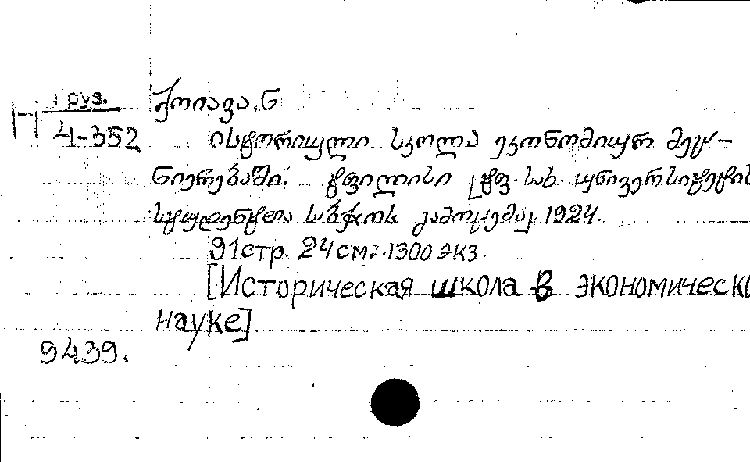 Груз.
4-352
ქოიავა, ნ
ისტორიული სკოლა ეკონომიურ მეც-
ნიერებაში. ტფილისი [ტფ. სახ. უნივერსიტეტის
სტუდენტთა საბჭოს გამოცემა] 1924.
91 стр. 24 см. 1300 экз.
[Историческая школа в экономическо
науке]
9439.